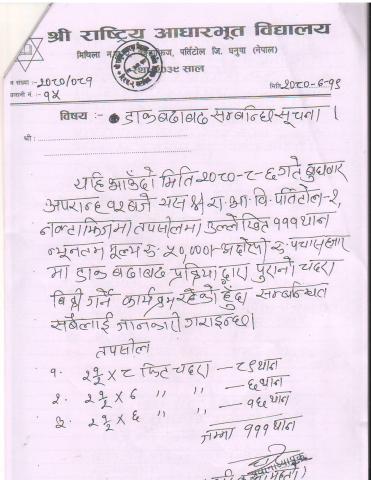 श्री राष्ट्रिय आधारभूत विद्यालय
मिथिला न.पा. पर्सिटोल जि. धनुषा (नेपाल)
स्था.२०३९ साल
प.संख्या :-२०८०/०८१
चलानी नं. :-१५
मिति:२०८०-८-१९
विषय :- डाक बढाबढ सम्बन्धि सूचना ।
श्री :
यहि आउँदो मिति २०८०-८-६ गते बुधवार
अपरान्ह १२ बजे यस श्री रा.आ.वि. पर्सिटोल-२,
मा तपसीलमा उल्लेखित १११ थान
न्यूनतम मूल्य रु. ५०,०००।- अक्षेरुपी रु. पचास हजार
मा डाक बढाबढ प्रक्रिया द्वारा पुरानो चदरा
बिक्री गर्ने कार्यक्रम रहेको हुँदा सम्बन्धित
सबैलाई जानकारी गराइन्छ।
तपसील
१. २१/२ × ८ फिट चदरा — ८९ थान
२. २१/२ × ७ " " — ६ थान
३. २१/२ × ६ " " — १६ थान
जम्मा १११ थान
प्रधानाध्यापक